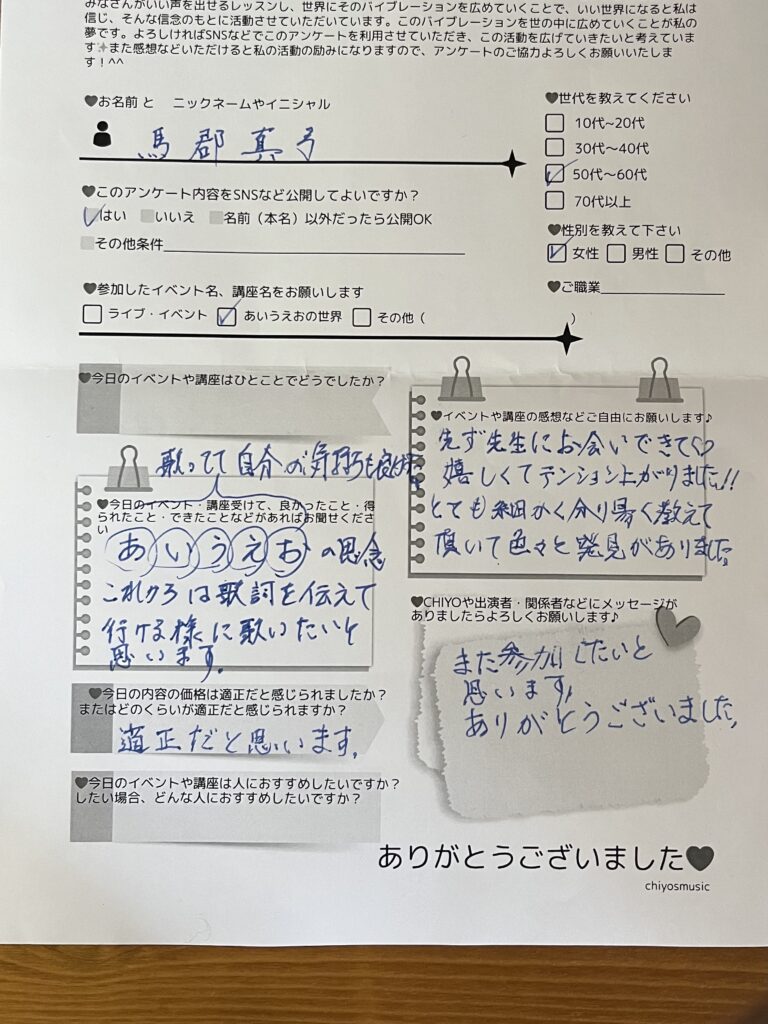 みなさんがいい声を出せるレッスンし、世界にそのバイブレーションを広めていくことで、いい世界になると私は
信じ、そんな信念のもとに活動させていただいています。このバイブレーションを世の中に広めていくことが私の
夢です。よろしければSNSなどでこのアンケートを利用させていただき、この活動を広げていきたいと考えていま
す✨また感想などいただけると私の活動の励みになりますので、アンケートのご協力よろしくお願いいたしま
す！^^
♥お名前 と ニックネームやイニシャル
馬郡 真弓
♥このアンケート内容をSNSなど公開してよいですか？
はい いいえ 名前（本名）以外だったら公開OK
その他条件
♥参加したイベント名、講座名をお願いします
ライブ・イベント あいうえおの世界 その他（ ）
♥世代を教えてください
10代~20代
30代~40代
50代~60代
70代以上
♥性別を教えて下さい
女性 男性 その他
♥ご職業
♥今日のイベントや講座はひとことでどうでしたか？
歌ってて自分の気持ちも良く
♥今日のイベント・講座受けて、良かったこと・得
られたこと・できたことなどがあればお聞せくださ
い
あいうえおの思念
これからは歌詞を伝えて
行ける様に歌いたいと
思います。
♥今日の内容の価格は適正だと感じられましたか？
またはどのくらいが適正だと感じられますか？
適正だと思います。
♥今日のイベントや講座は人におすすめしたいですか？
したい場合、どんな人におすすめしたいですか？
♥イベントや講座の感想などご自由にお願いします♪
先ず先生にお会いできて♡
嬉しくてテンション上がりました!!
とても細かく分り易く教えて
頂いて色々と発見がありました
♥CHIYOや出演者・関係者などにメッセージが
ありましたらよろしくお願いします♪
また参加したいと
思います。
ありがとうございました。
ありがとうございました♥
chiyosmusic